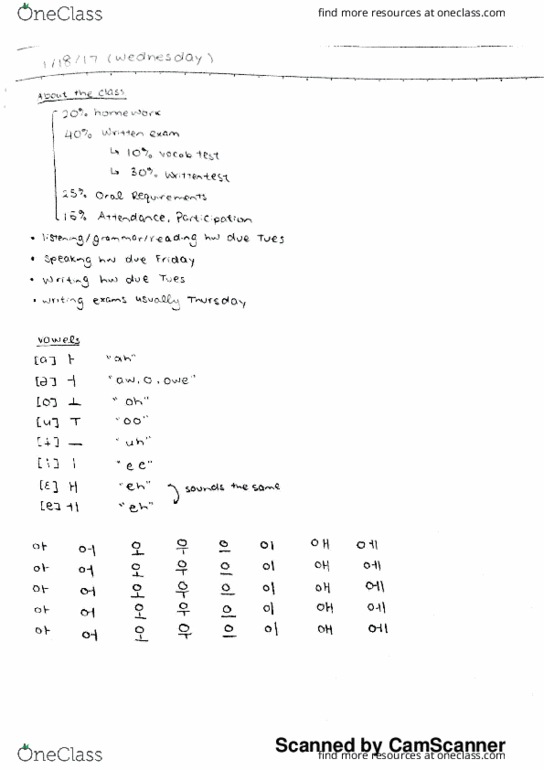 OneClass
find more resources at oneclass.com
1/18/17 (Wednesday)
About the class
20% homework
40% written exam
↳ 10% vocab test
↳ 30% written test
25% Oral Requirements
15% Attendance, Participation
• listening/grammar/reading hw due Tues
• Speaking hw due Friday
• Writing hw due Tues
• writing exams usually Thursday
vowels
[a] ㅏ "ah"
[ə] ㅓ "aw, o, owe"
[o] ㅗ "oh"
[u] ㅜ "oo"
[ɨ] ㅡ "uh"
[i] ㅣ "ee"
[ɛ] ㅐ "eh"
sounds the same
[e] ㅔ "eh"
아 어 오 우 으 이 애 에
아 어 오 우 으 이 애 에
아 어 오 우 으 이 애 에
아 어 오 우 으 이 애 에
아 어 오 우 으 이 애 에
Scanned by CamScanner
OneClass
find more resources at oneclass.com